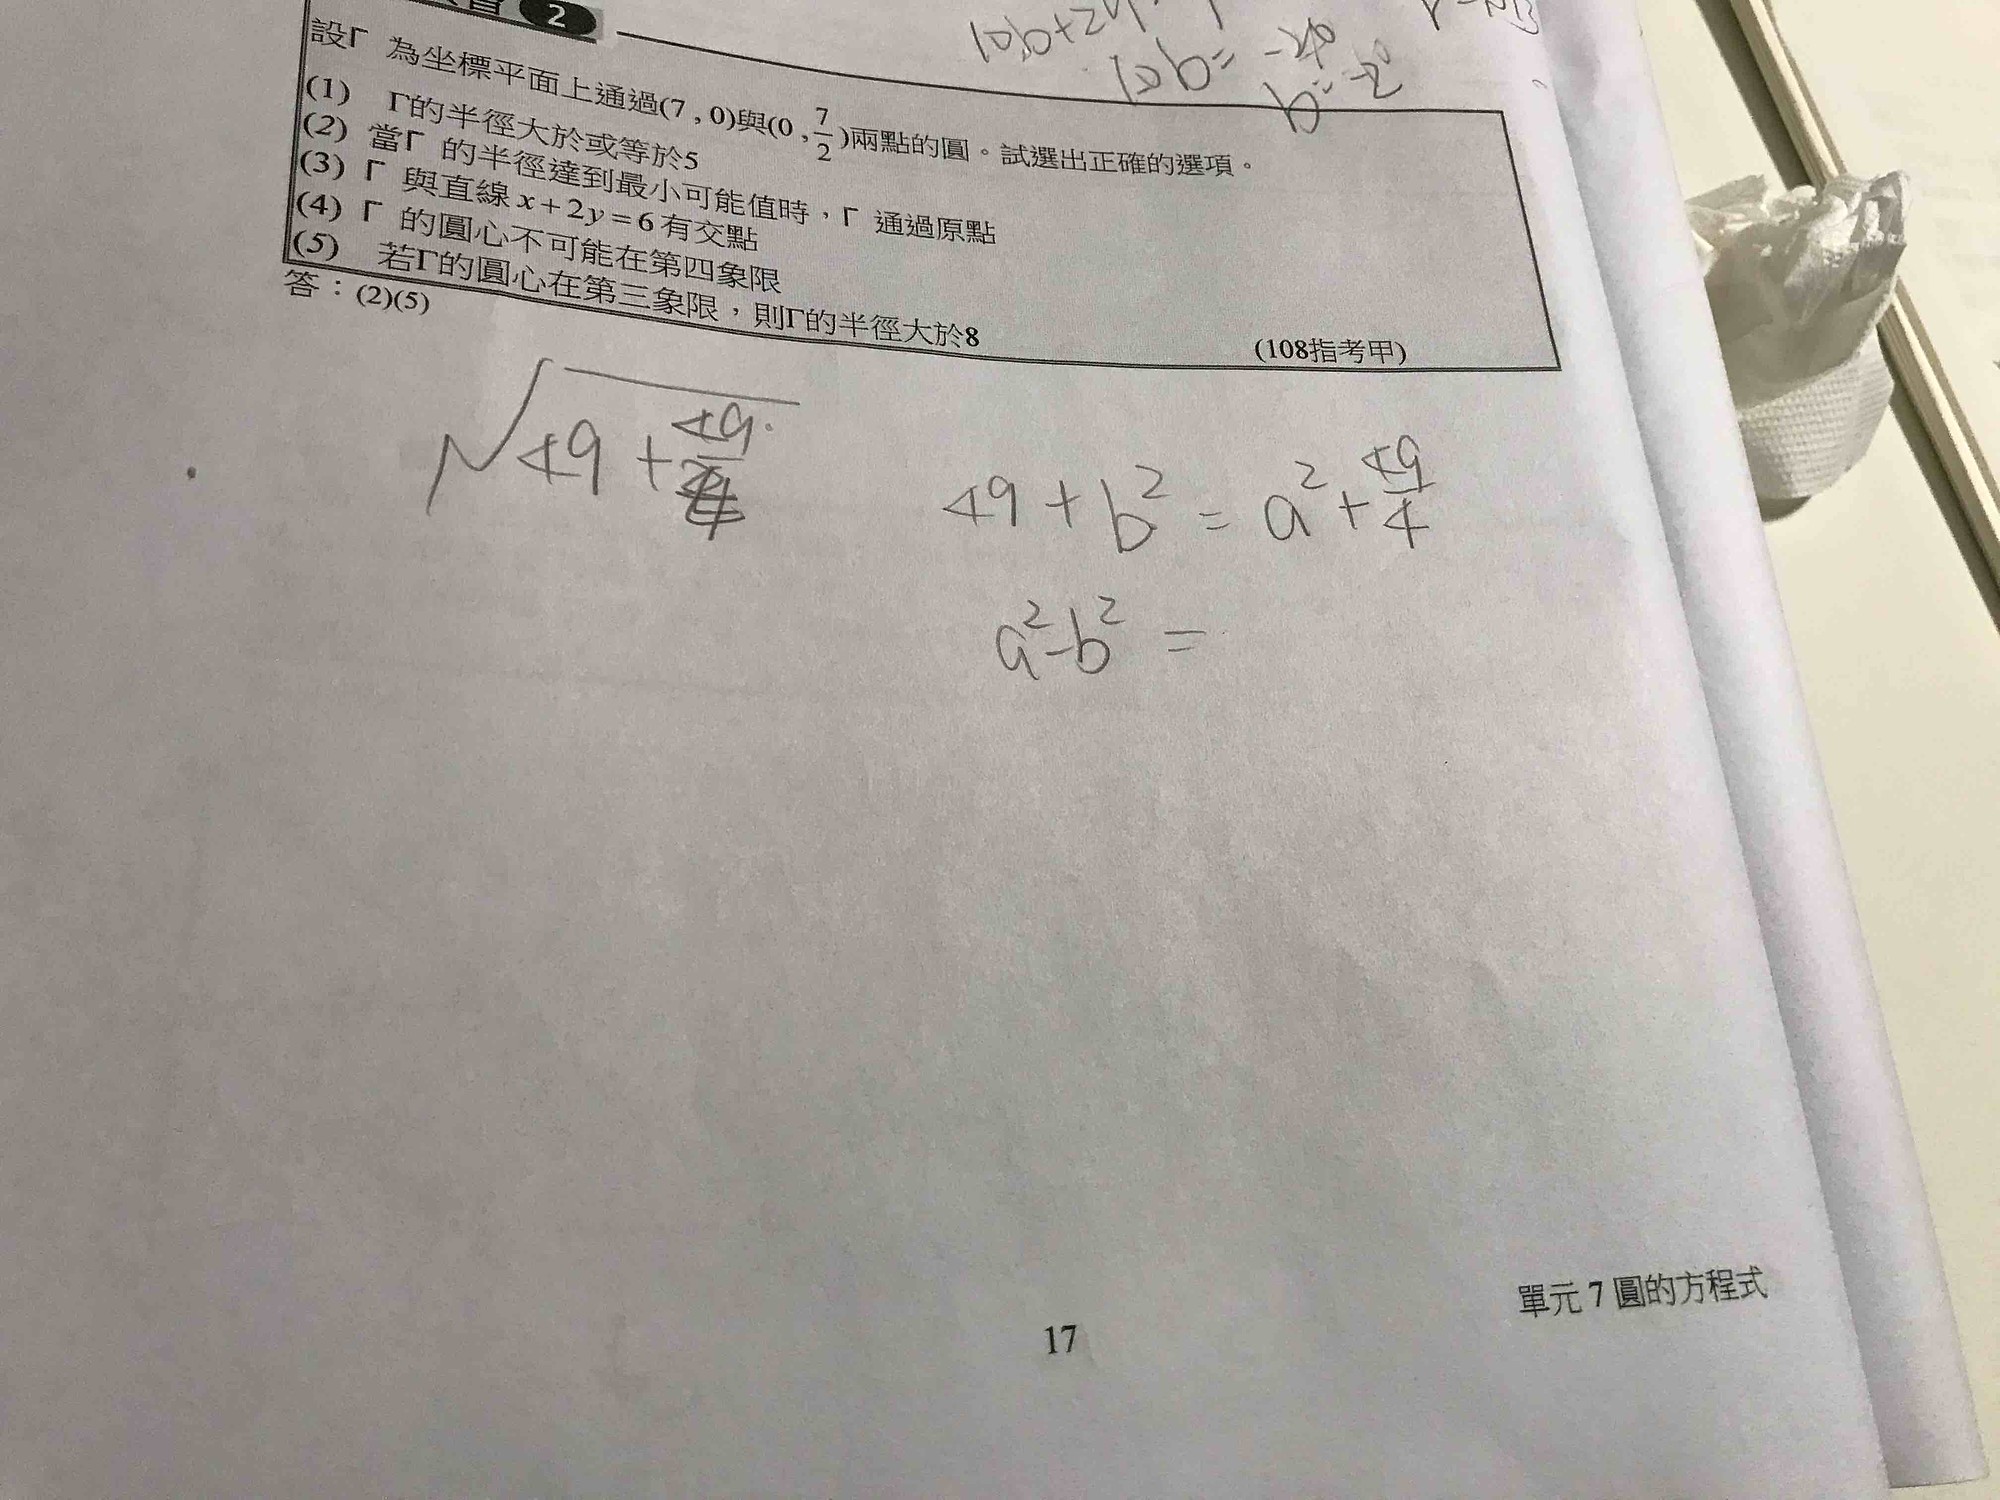 2
10b+24
10b=-20
設Γ 為坐標平面上通過(7 , 0)與(0 , 7/2)兩點的圓。試選出正確的選項。
(1) Γ的半徑大於或等於5
(2) 當Γ 的半徑達到最小可能值時，Γ 通過原點
(3) Γ 與直線 x + 2y = 6 有交點
(4) Γ 的圓心不可能在第四象限
(5) 若Γ的圓心在第三象限，則Γ的半徑大於8
(108指考甲)
答：(2)(5)
√49 + 49/4
49 + b² = a² + 49/4
a² - b² =
單元 7 圓的方程式
17